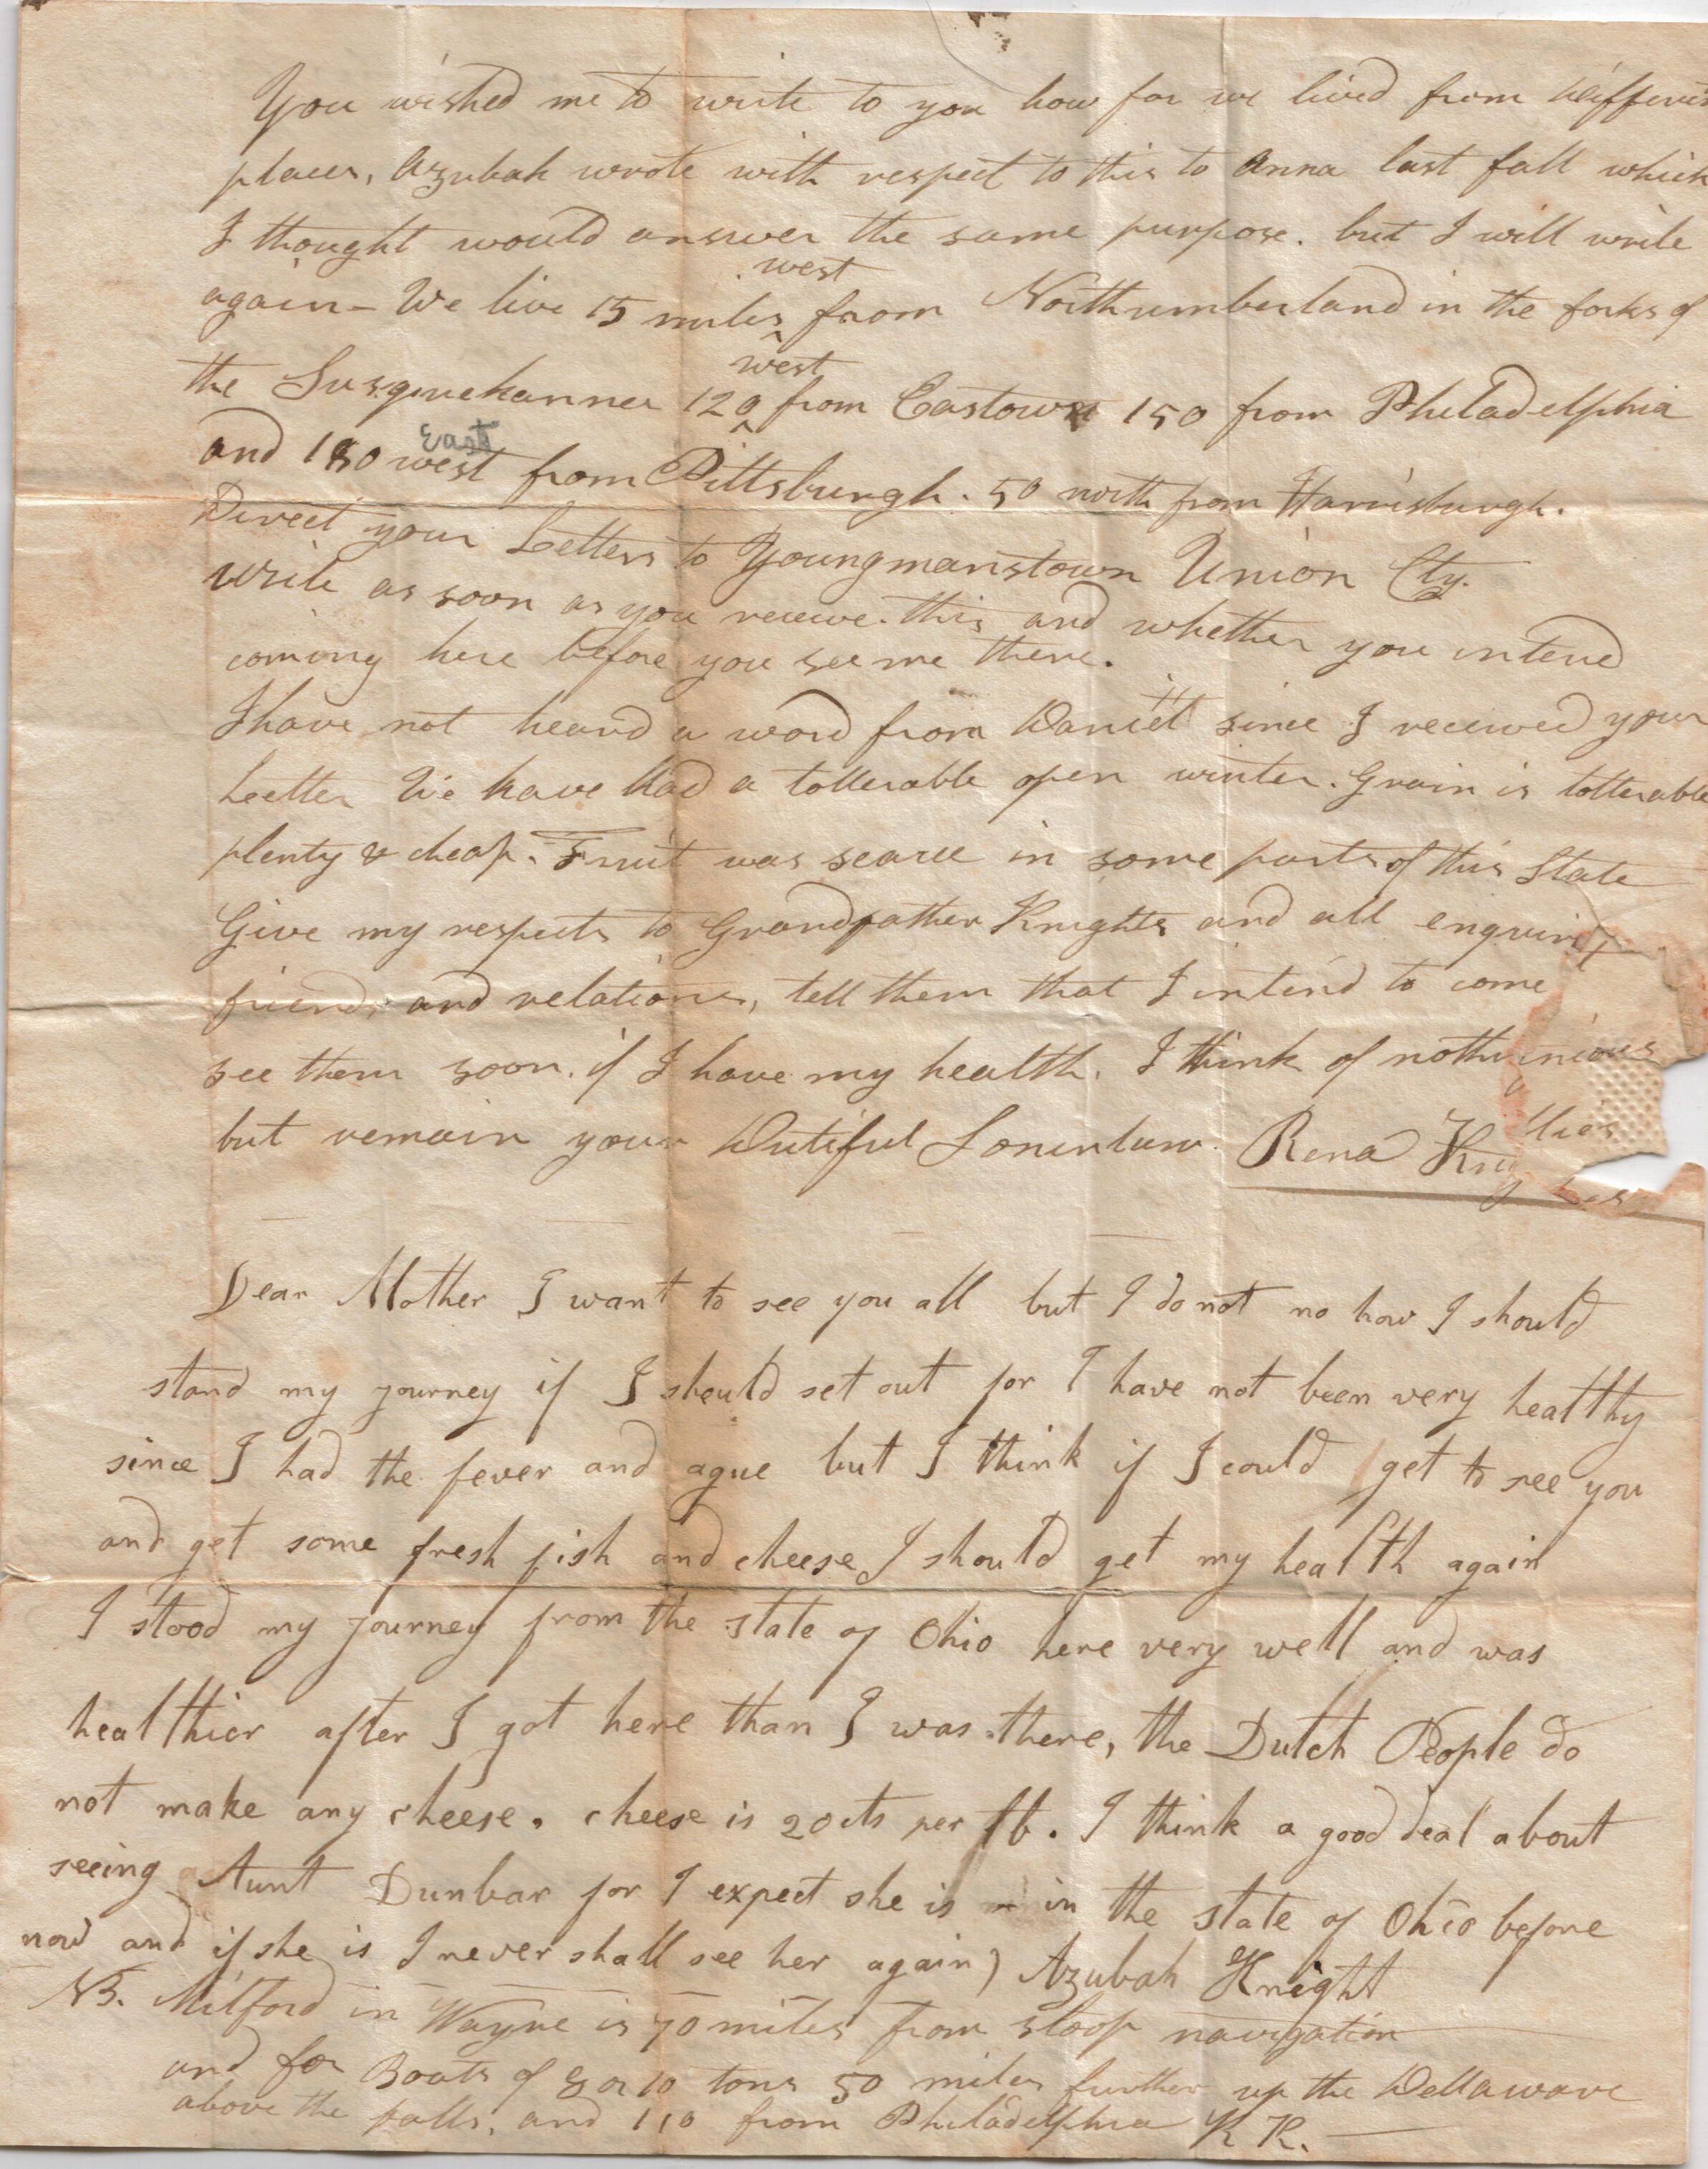 You wished me to write to you how far we lived from differen
places, Azubah wrote with respect to this to Anna last fall which
I thought would answer the same purpose. but I will write
again - We live 15 miles west from Northumberland in the forks of
the Susquehanner 120 west from Eastown 150 from Philadelphia
and 180 west East from Pittsburgh. 50 north from Harrisburgh.
Direct your Letters to Youngmanstown Union Cty.
Write as soon as you receive this and whether you intend
coming here before you see me there.
I have not heard a word from Daniel since I received your
Letter We have had a tollerable open winter. Grain is tollerable
plenty & cheap. Fruit was scarce in some parts of this State
Give my respects to Grandfather Knights and all enquiring
friends and relations, tell them that I intend to come
see them soon. if I have my health. I think of
but remain your Dutiful Soninlaw. Rena
Dear Mother I want to see you all but I do not no how I should
stand my journey if I should set out for I have not been very healthy
since I had the fever and ague but I think if I could get to see you
and get some fresh fish and cheese I should get my health again
I stood my journey from the state of Ohio here very well and was
healthier after I got here than I was there, the Dutch People do
not make any cheese. cheese is 20 cts per lb. I think a good deal about
seeing Aunt Dunbar for I expect she is in the state of Ohio before
now and if she is I never shall see her again) Azubah Knight
NB. Milford in Wayne is 70 miles from sloop navigation
and for Boats of 8 or 10 tons 50 miles further up the Dellaware
above the falls, and 110 from Philadelphia R K.